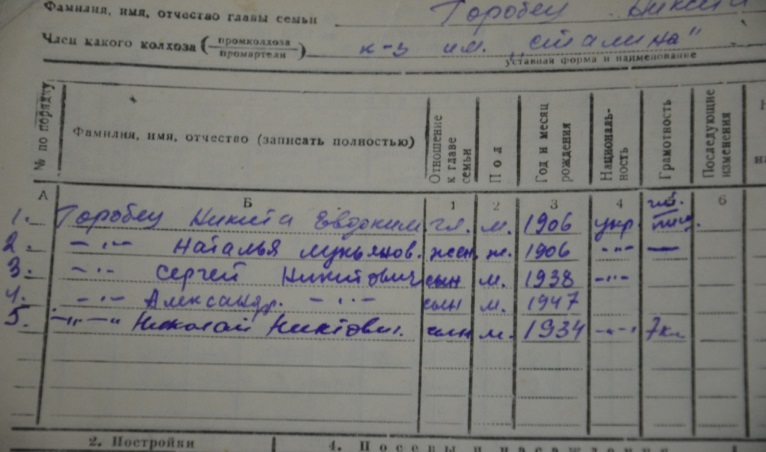 Фамилия, имя, отчество главы семьи Горобец Никит
Член какого колхоза (промколхоза промартели) к-з им. „Сталина"
уставная форма и наименование
№ по порядку Фамилия, имя, отчество (записать полностью) Отношение к главе семьи Пол Год и месяц рождения Националь-ность Грамотность Последующие изменения
А Б 1 2 3 4 6
1. Горобец Никита Евдоким гл. м. 1906 укр
2. -"- Наталья Лукьянов. жен. ж. 1906 -"- —
3. -"- Сергей Никитович сын м. 1938 -"-
4. -"- Александр. -"- сын м. 1947
5. -"- Николай Никтович. сын м. 1934 -"- 7кл
2. Постройки 4. Посевы и насаждения